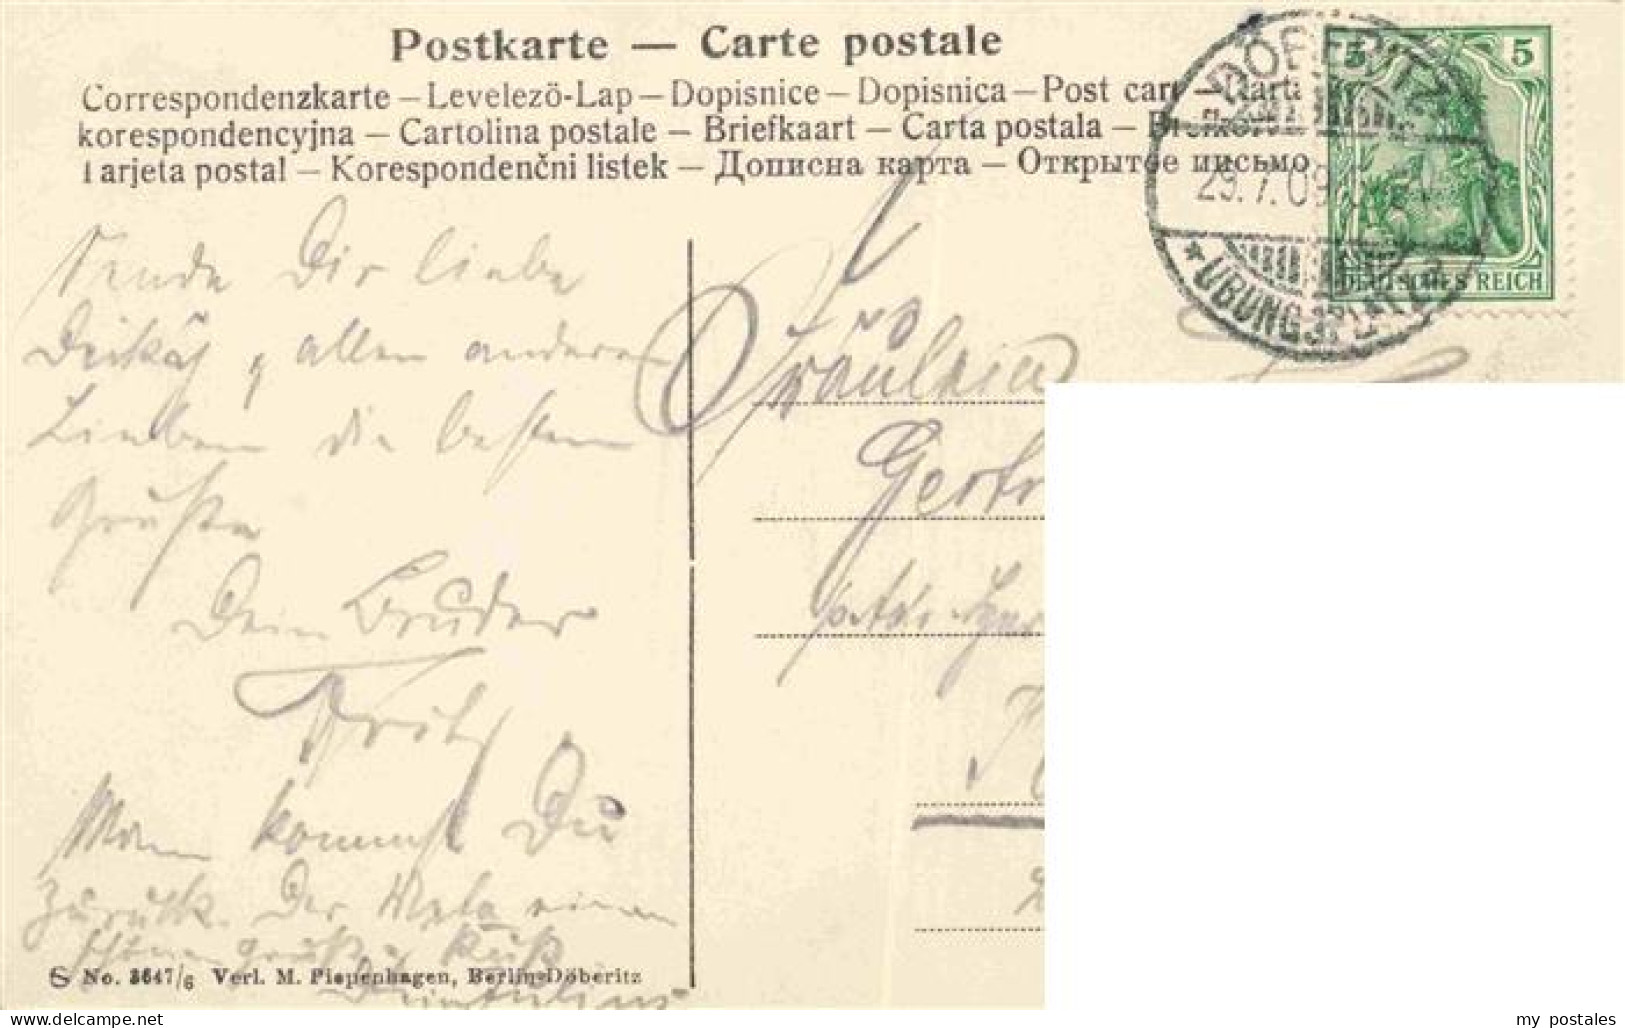 Postkarte — Carte postale
Correspondenzkarte – Levelezö-Lap – Dopisnice – Dopisnica – Post cart – Karta
korespondencyjna – Cartolina postale – Briefkaart – Carta postala – Brefkort
Tarjeta postal – Korespondenčni listek – Дописна карта – Открытое письмо
DÖBERITZ
29.7.09
ÜBUNGSPLATZ
5 5
DEUTSCHES REICH
Sende Dir liebe
allen anderen
Lieben die besten
Grüße
Dein Bruder
Fritz
Wann kommst Du
zurück. Der einen
schönen Gruß u. Kuß
Fräulein
Gertr
No. 3647/6 Verl. M. Piepenhagen, Berlin-Döberitz
my postales